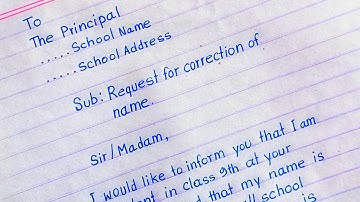 To
The Principal
..... School Name
..... School Address
Sub: Request for correction of
name.
Sir/Madam,
I would like to inform you that I am
in class 9th at your
that my name is
school
is